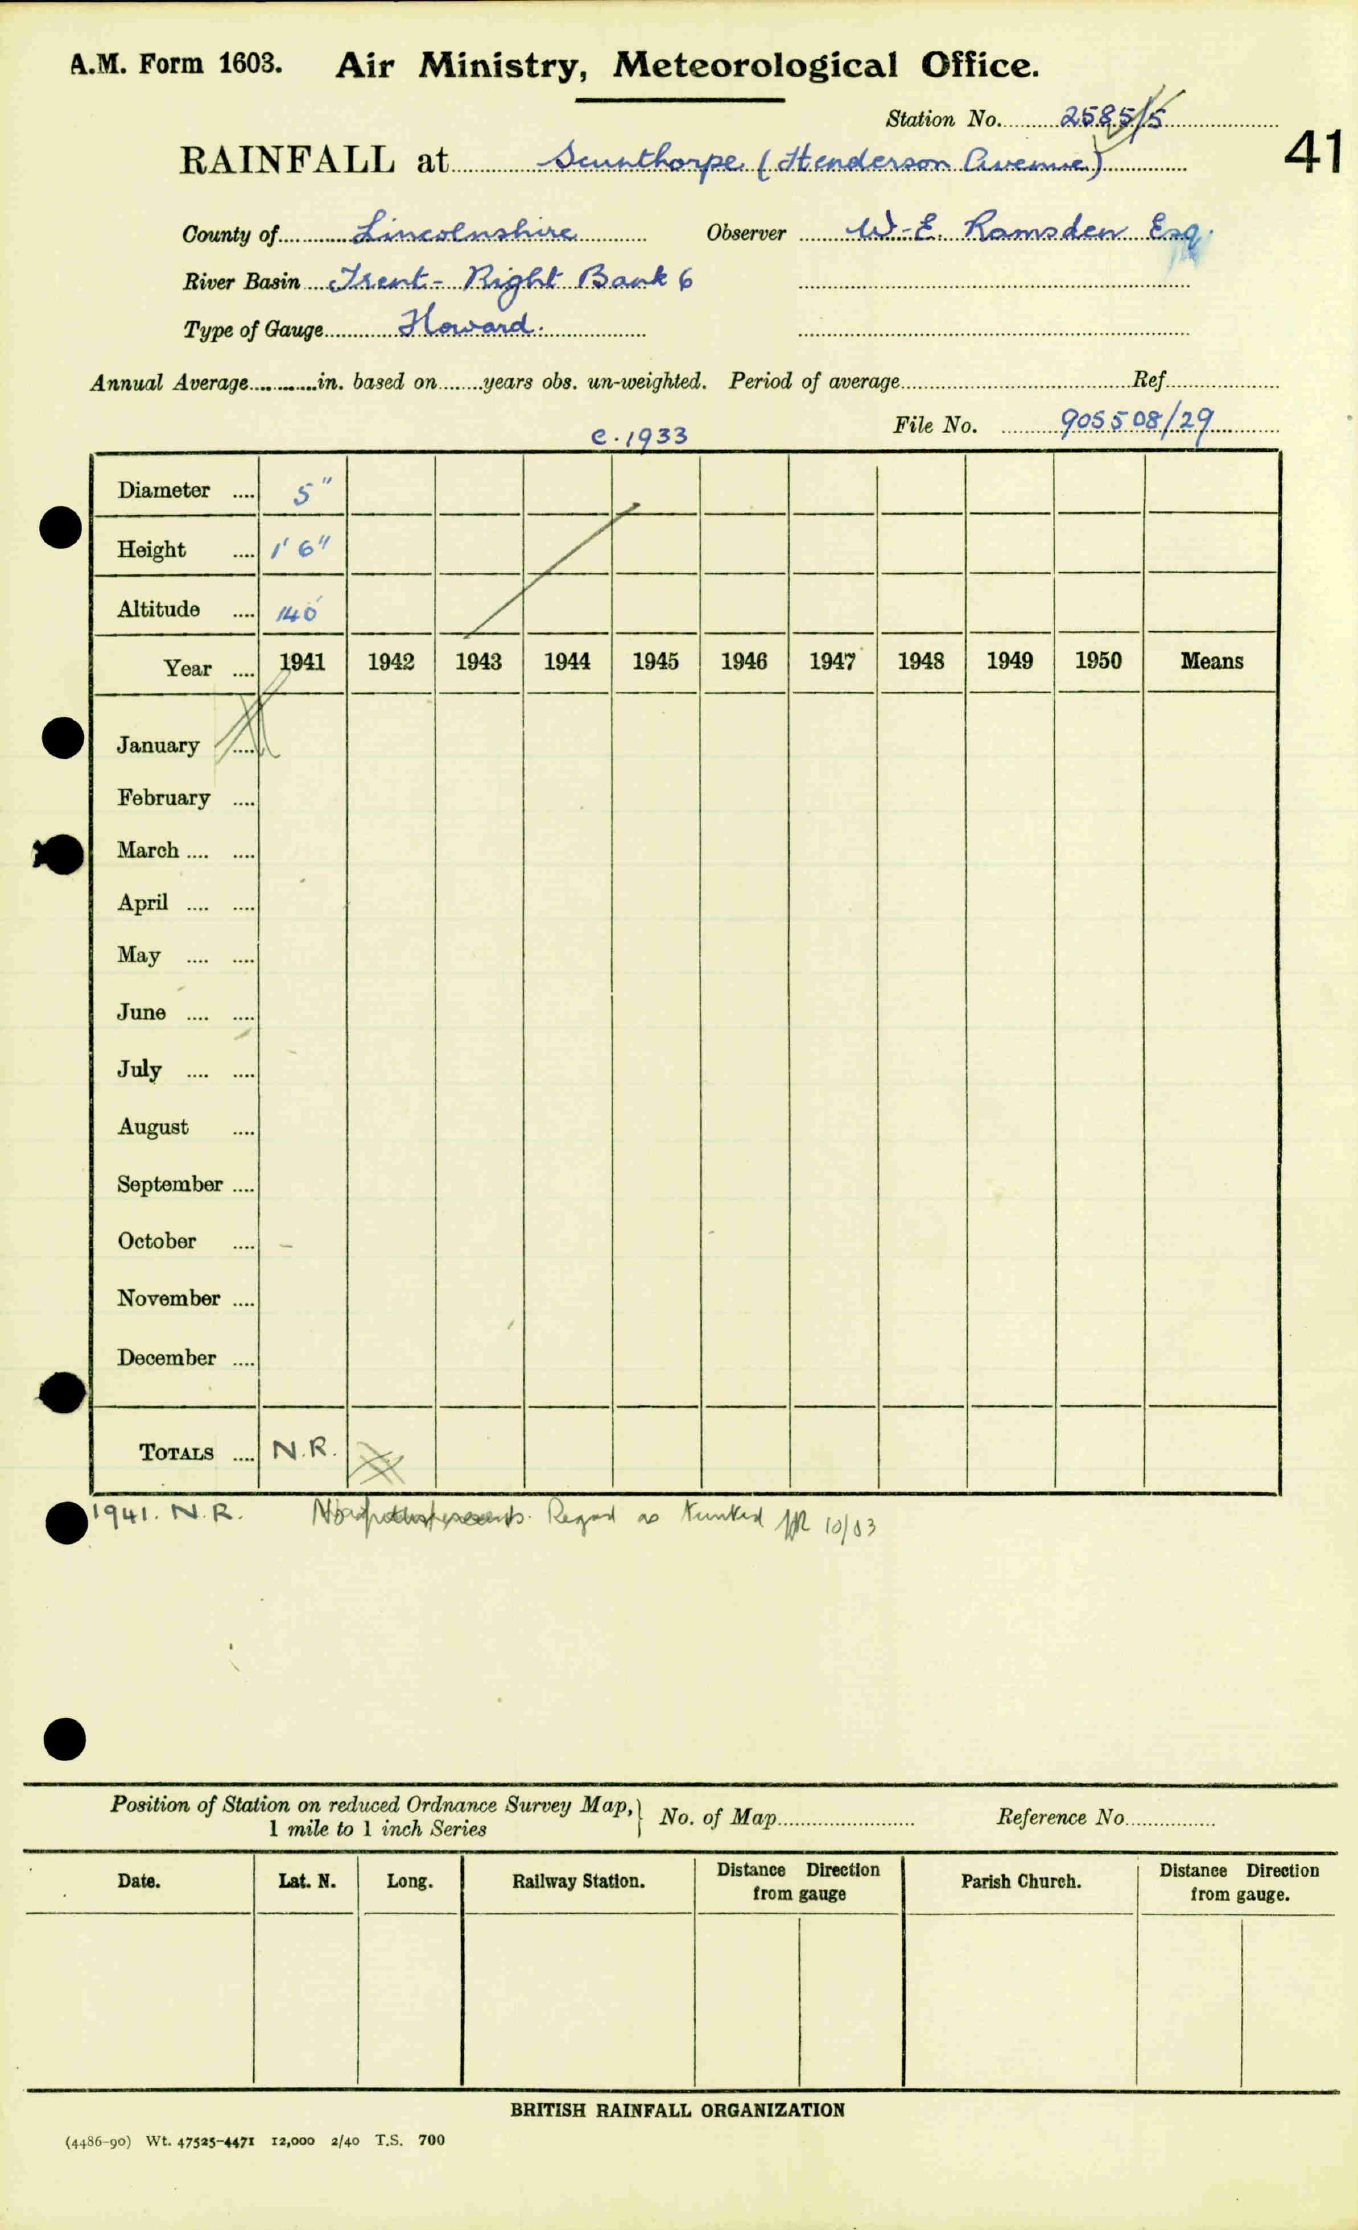 A.M. Form 1603. Air Ministry, Meteorological Office.
Station No. 2585/5
RAINFALL at Scunthorpe (Henderson Avenue)
41
County of Lincolnshire Observer W.E. Ramsden Esq.
River Basin Trent - Right Bank 6
Type of Gauge Howard.
Annual Average in. based on years obs. un-weighted. Period of average Ref
File No. 905508/29
c.1933
Diameter .... 5"
Height .... 1' 6"
Altitude .... 140'
Year .... 1941 1942 1943 1944 1945 1946 1947 1948 1949 1950 Means
January ....
February ....
March .... ....
April .... ....
May .... ....
June .... ....
July .... ....
August ....
September ....
October ....
November ....
December ....
TOTALS .... N.R.
1941. N.R. Regard as 10/83
Position of Station on reduced Ordnance Survey Map, } No. of Map Reference No.
1 mile to 1 inch Series
Date. Lat. N. Long. Railway Station. Distance Direction from gauge Parish Church. Distance Direction from gauge.
BRITISH RAINFALL ORGANIZATION
(4486-90) Wt. 47525-4471 12,000 2/40 T.S. 700